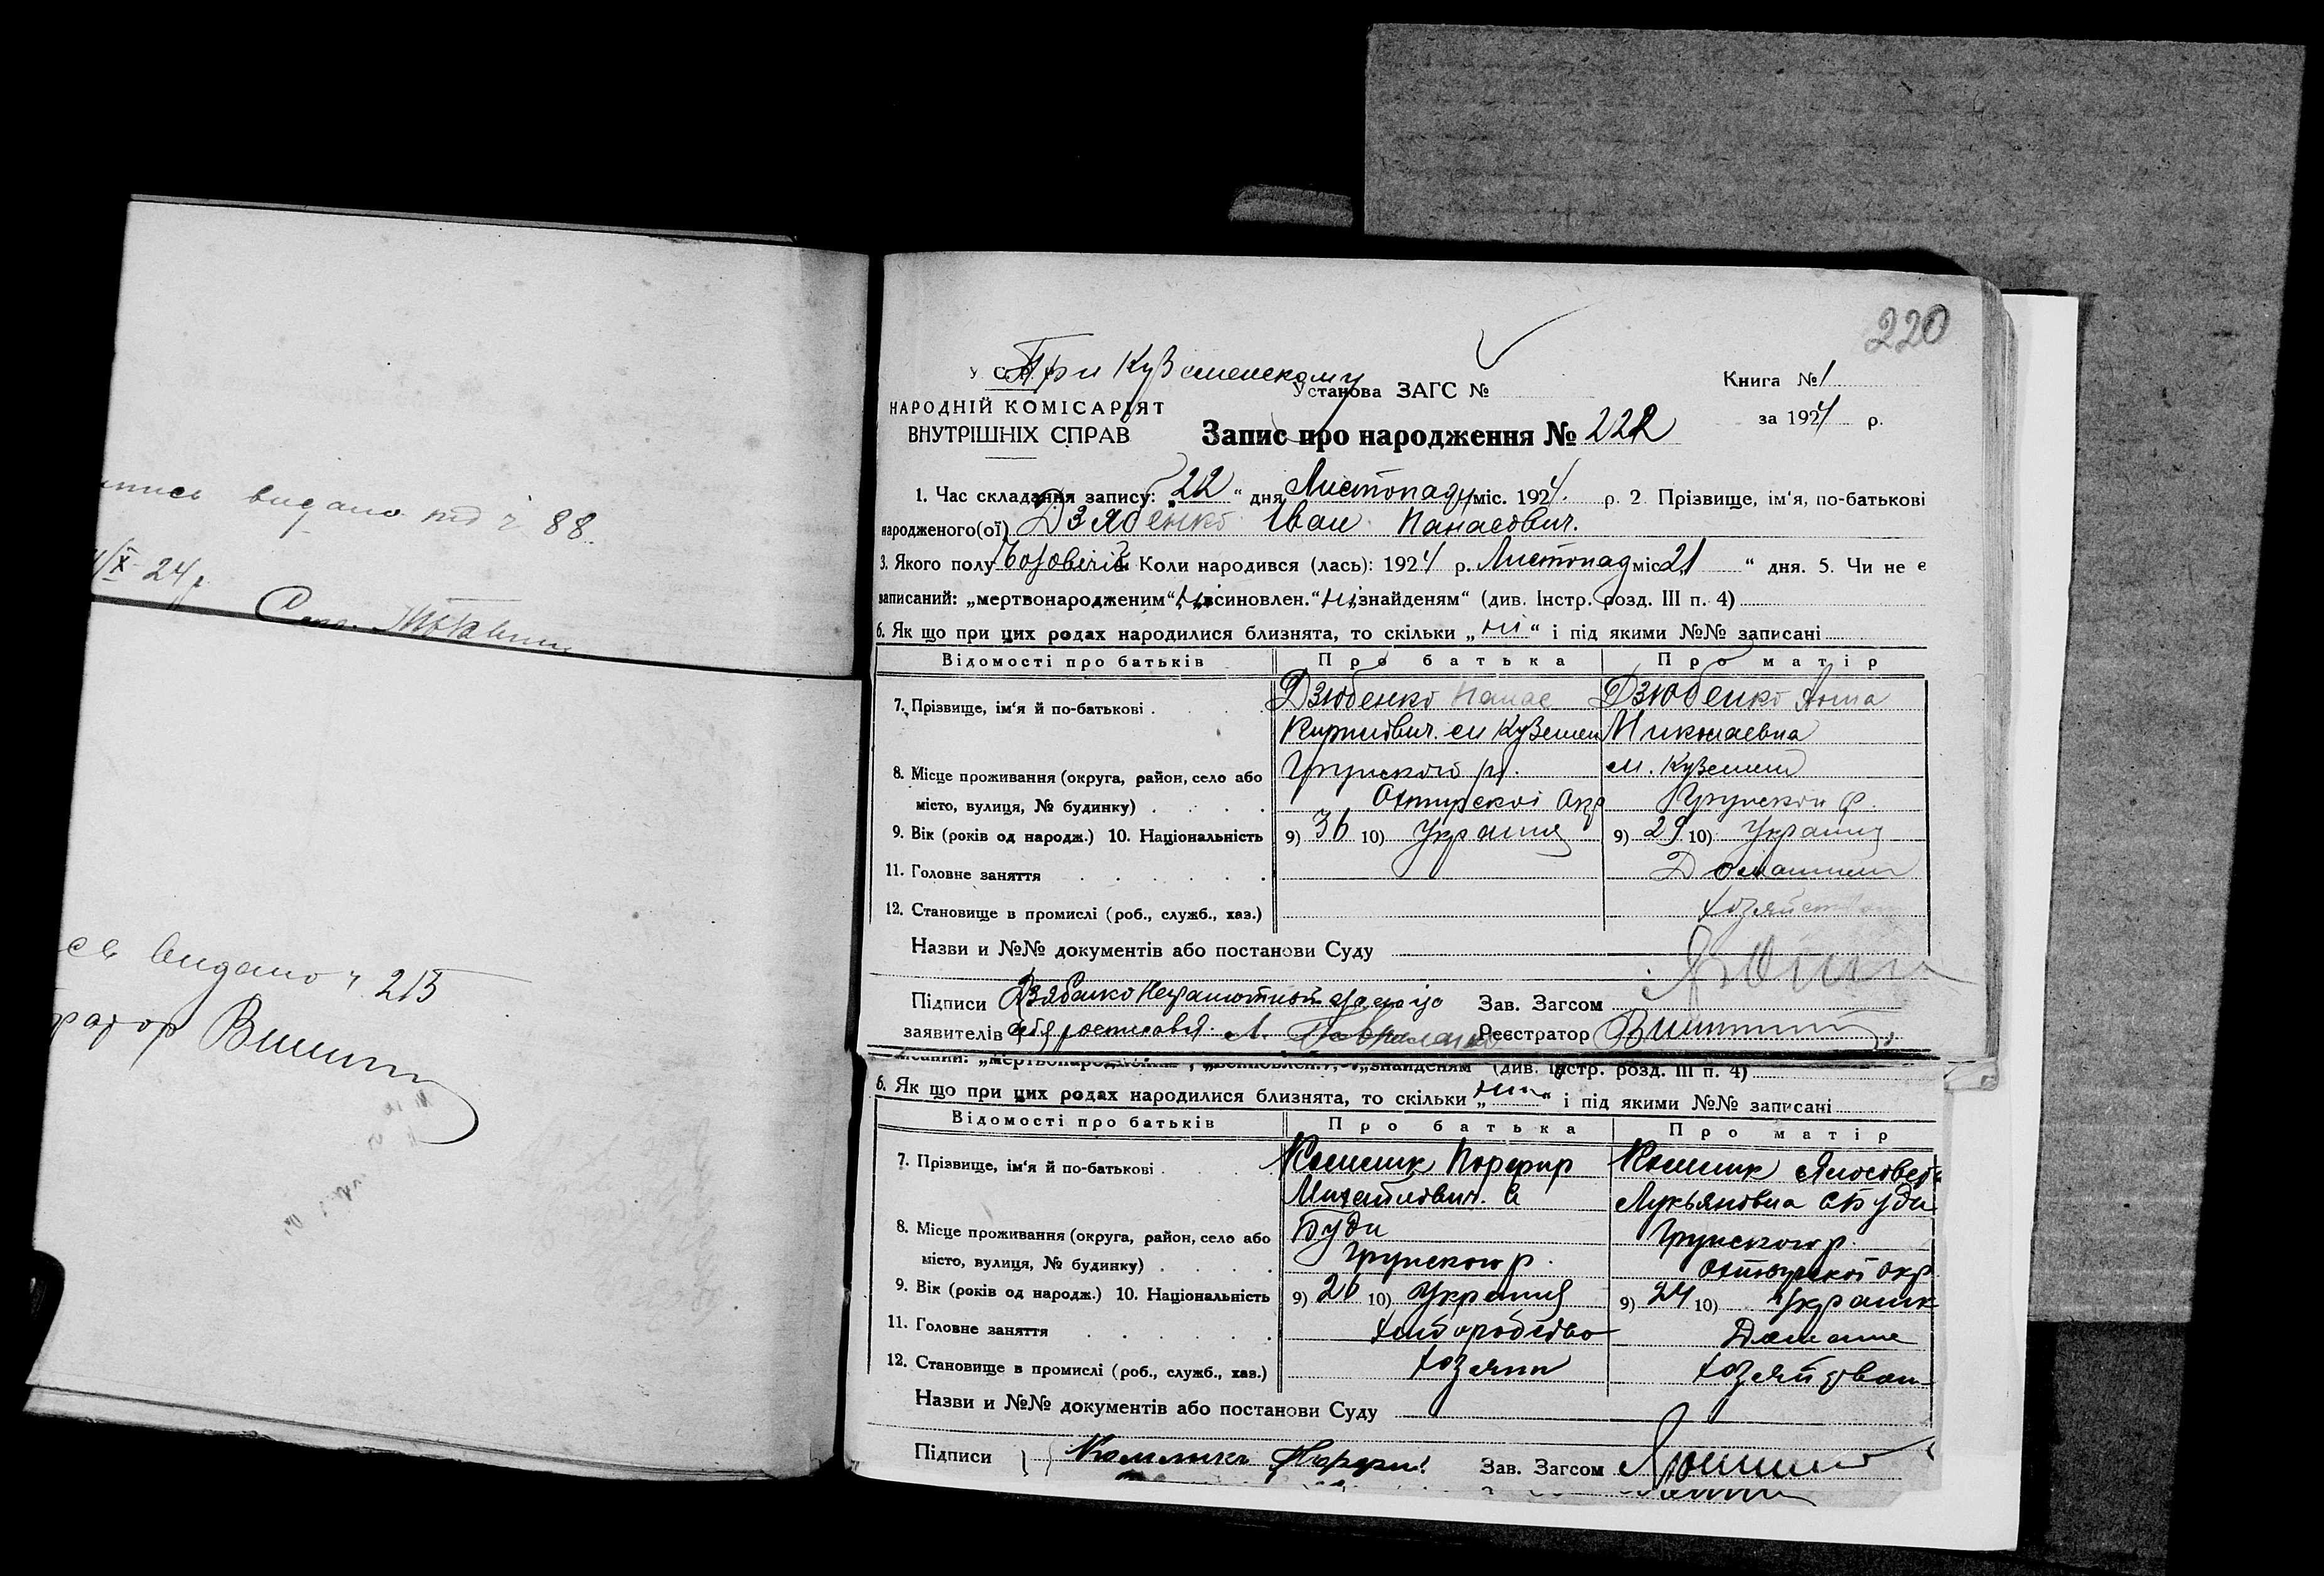 видано під ч 88.
X 24 р
видано ч 215
220
При Куземенському
У С Р Р
Установа ЗАГС №
Книга № 1
НАРОДНІЙ КОМІСАРІЯТ
ВНУТРІШНІХ СПРАВ
за 1924 р.
Запис про народження № 222
1. Час складання запису: „22“ дня Листопаду міс. 1924. р. 2. Прізвище, ім‘я, по-батькові
народженого(ої) Дзябенко Іван Панасович.
3. Якого полу Чоловічій Коли народився (лась): 1924 р. Листопад міс. 21 “ дня. 5. Чи не є
записаний: „мертвонародженим“, ні „всиновлен.“ ні „знайденям“ (див. Інстр. розд. III п. 4)
6. Як що при цих родах народилися близнята, то скільки „ні“ і під якими №№ записані
Відомості про батьків Про батька Про матір
7. Прізвище, ім‘я й по-батькові Дзюбенко Панас Дзюбенко Анна
Кирилович. м Куземен Миколаевна
8. Місце проживання (округа, район, село або Грунского р. м. Куземени
місто, вулиця, № будинку) Охтирскоі Окр Грунской
9. Вік (років од народж.) 10. Національність 9) 36 10) Украинц 9) 29 10) Украинц
11. Головне заняття Домашнем
12. Становище в промислі (роб., служб., хаз.) хозяйством
Назви и №№ документів або постанови Суду
Підписи Дзябенко Неграмотной Зав. Загсом
заявителів росписався. Реєстратор
писаний: „мертвонародженим“, „всиновлен.“, „знайденям“ (див. Інстр. розд. III п. 4)
6. Як що при цих родах народилися близнята, то скільки „ “ і під якими №№ записані
Відомості про батьків Про батька Про матір
7. Прізвище, ім‘я й по-батькові Калмик Порфир Калмик
Михайлович. с Лукьяновна с Буди
8. Місце проживання (округа, район, село або Буди Грунского р.
місто, вулиця, № будинку) Грунского р. Охтирскої окр
9. Вік (років од народж.) 10. Національність 9) 26 10) Украинц 9) 24 10) Украинк
11. Головне заняття хлиборобство Домашне
12. Становище в промислі (роб., служб., хаз.) хозяин хозяйство
Назви и №№ документів або постанови Суду
Підписи Зав. Загсом